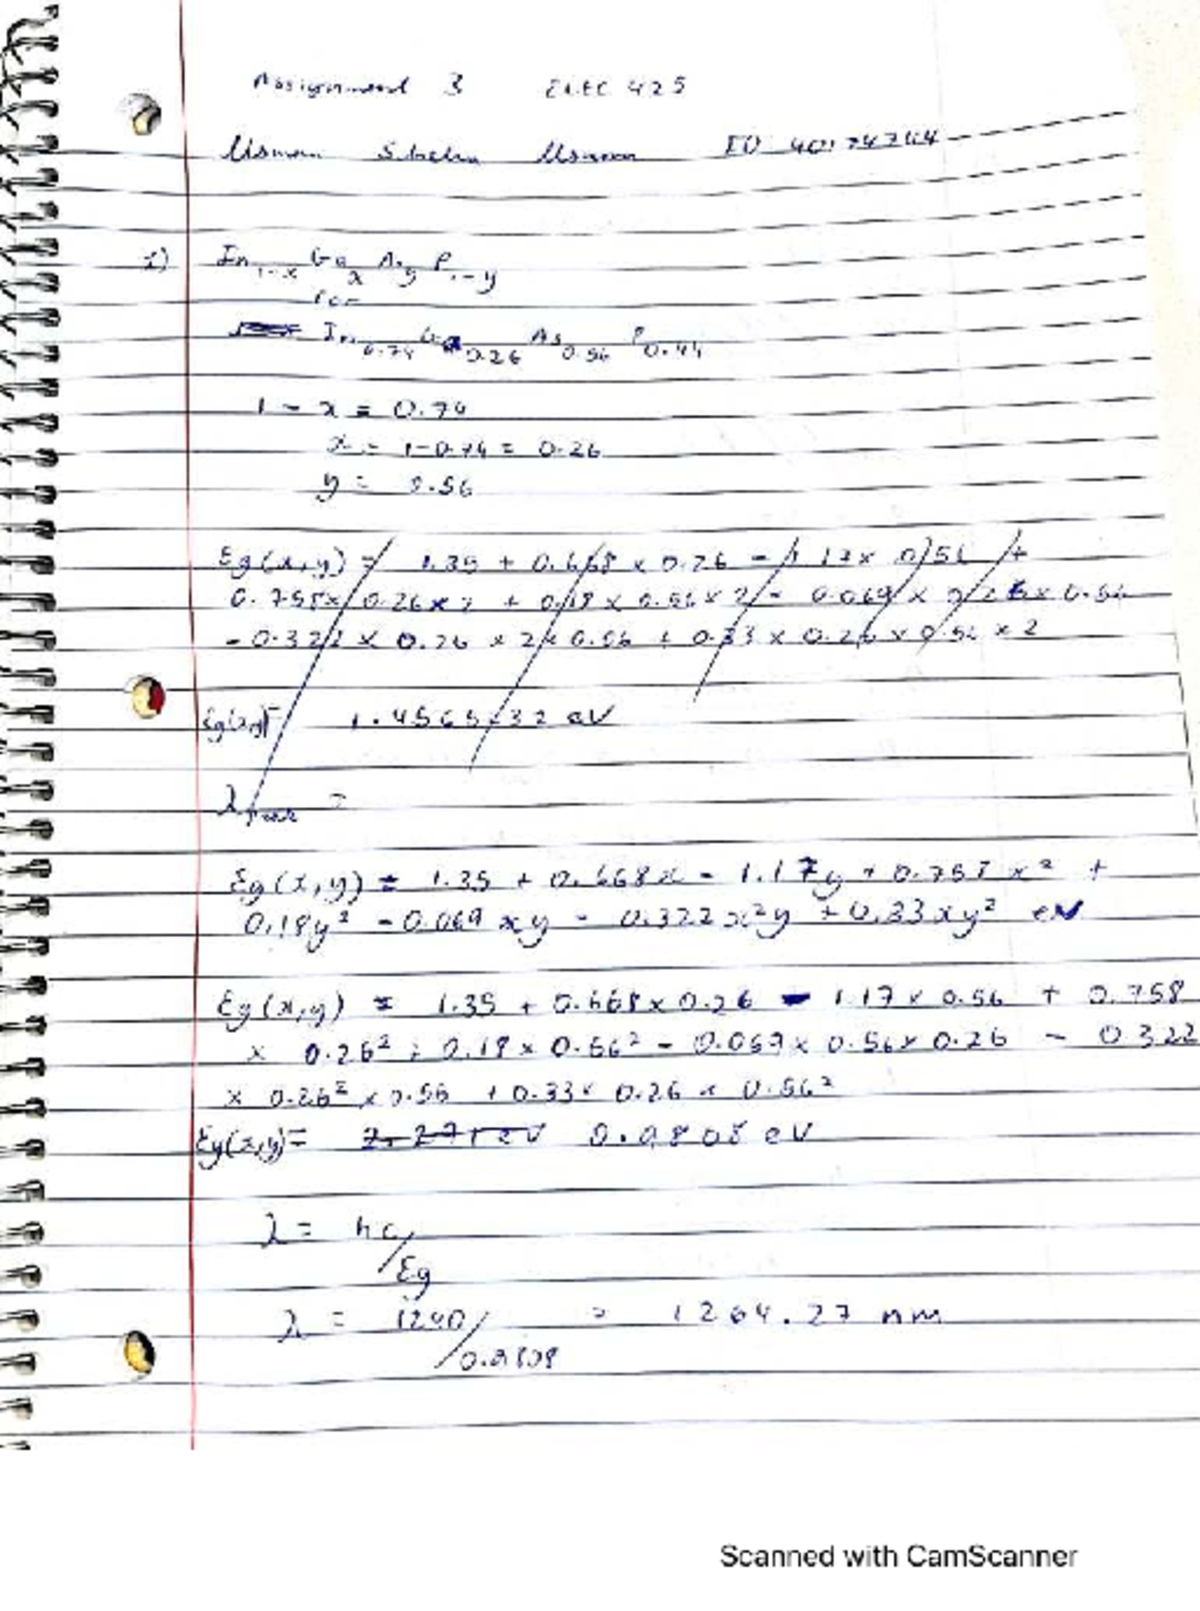 Assignment 3 ELEC 425
Usman Usman ID 40174744
1) In1-x Gax Asy P1-y
for
In0.74 Ga0.26 As0.56 P0.44
1 - x = 0.74
x = 1-0.74 = 0.26
y = 0.56
Eg(x,y) = 1.35 + 0.668 x 0.26 - 1.17 x 0.56 +
0.758 x 0.26 x 2 + 0.18 x 0.56 x 2 - 0.069 x 0.26 x 0.56
- 0.322 x 0.26 x 2 x 0.56 + 0.33 x 0.26 x 0.56 x 2
Eg(x,y) = 1.4565732 eV
λpeak =
Eg(x,y) = 1.35 + 0.668x - 1.17y + 0.758 x² +
0.18y² - 0.069 xy - 0.322 x²y + 0.33xy² eV
Eg(x,y) = 1.35 + 0.668 x 0.26 - 1.17 x 0.56 + 0.758
x 0.26² + 0.18 x 0.56² - 0.069 x 0.56 x 0.26 - 0.322
x 0.26² x 0.56 + 0.33 x 0.26 x 0.56²
Eg(x,y) = 0.9808 eV
λ = hc/Eg
λ = 1240/0.9808 = 1264.27 nm
Scanned with CamScanner